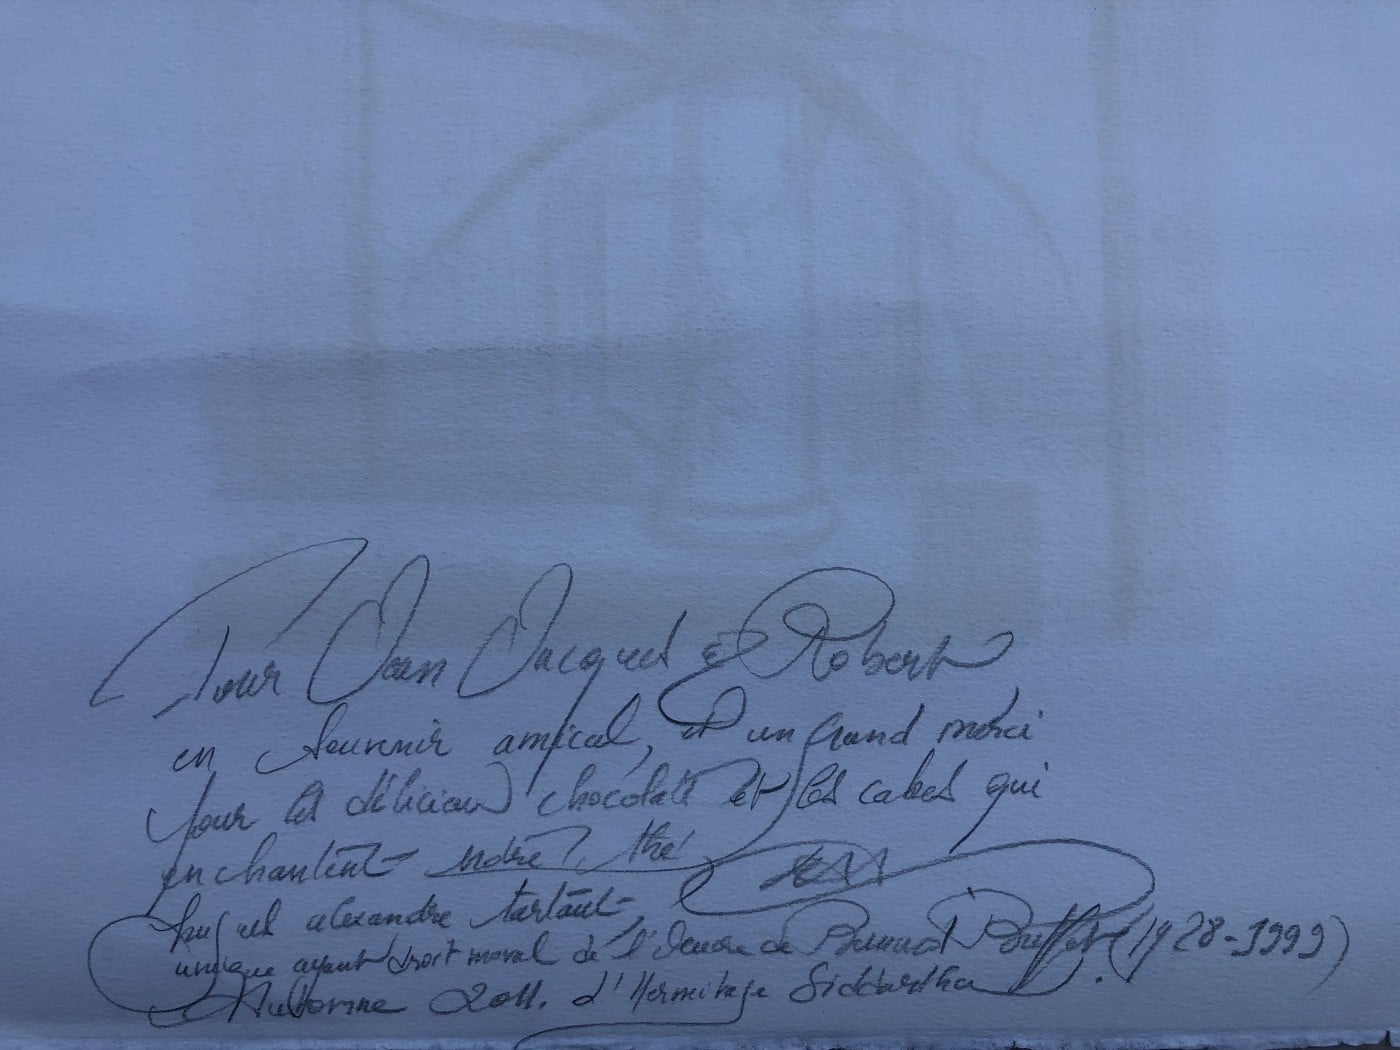 Pour Jean Jacques & Robert
en souvenir amical, et un grand merci
pour les délicieux chocolats et les cakes qui
enchantent notre thé
alexandre tartaut
unique ayant droit moral de l'Oeuvre de Bernard Buffet (1928-1999)
Automne 2011. d'Hermitage Siddartha.